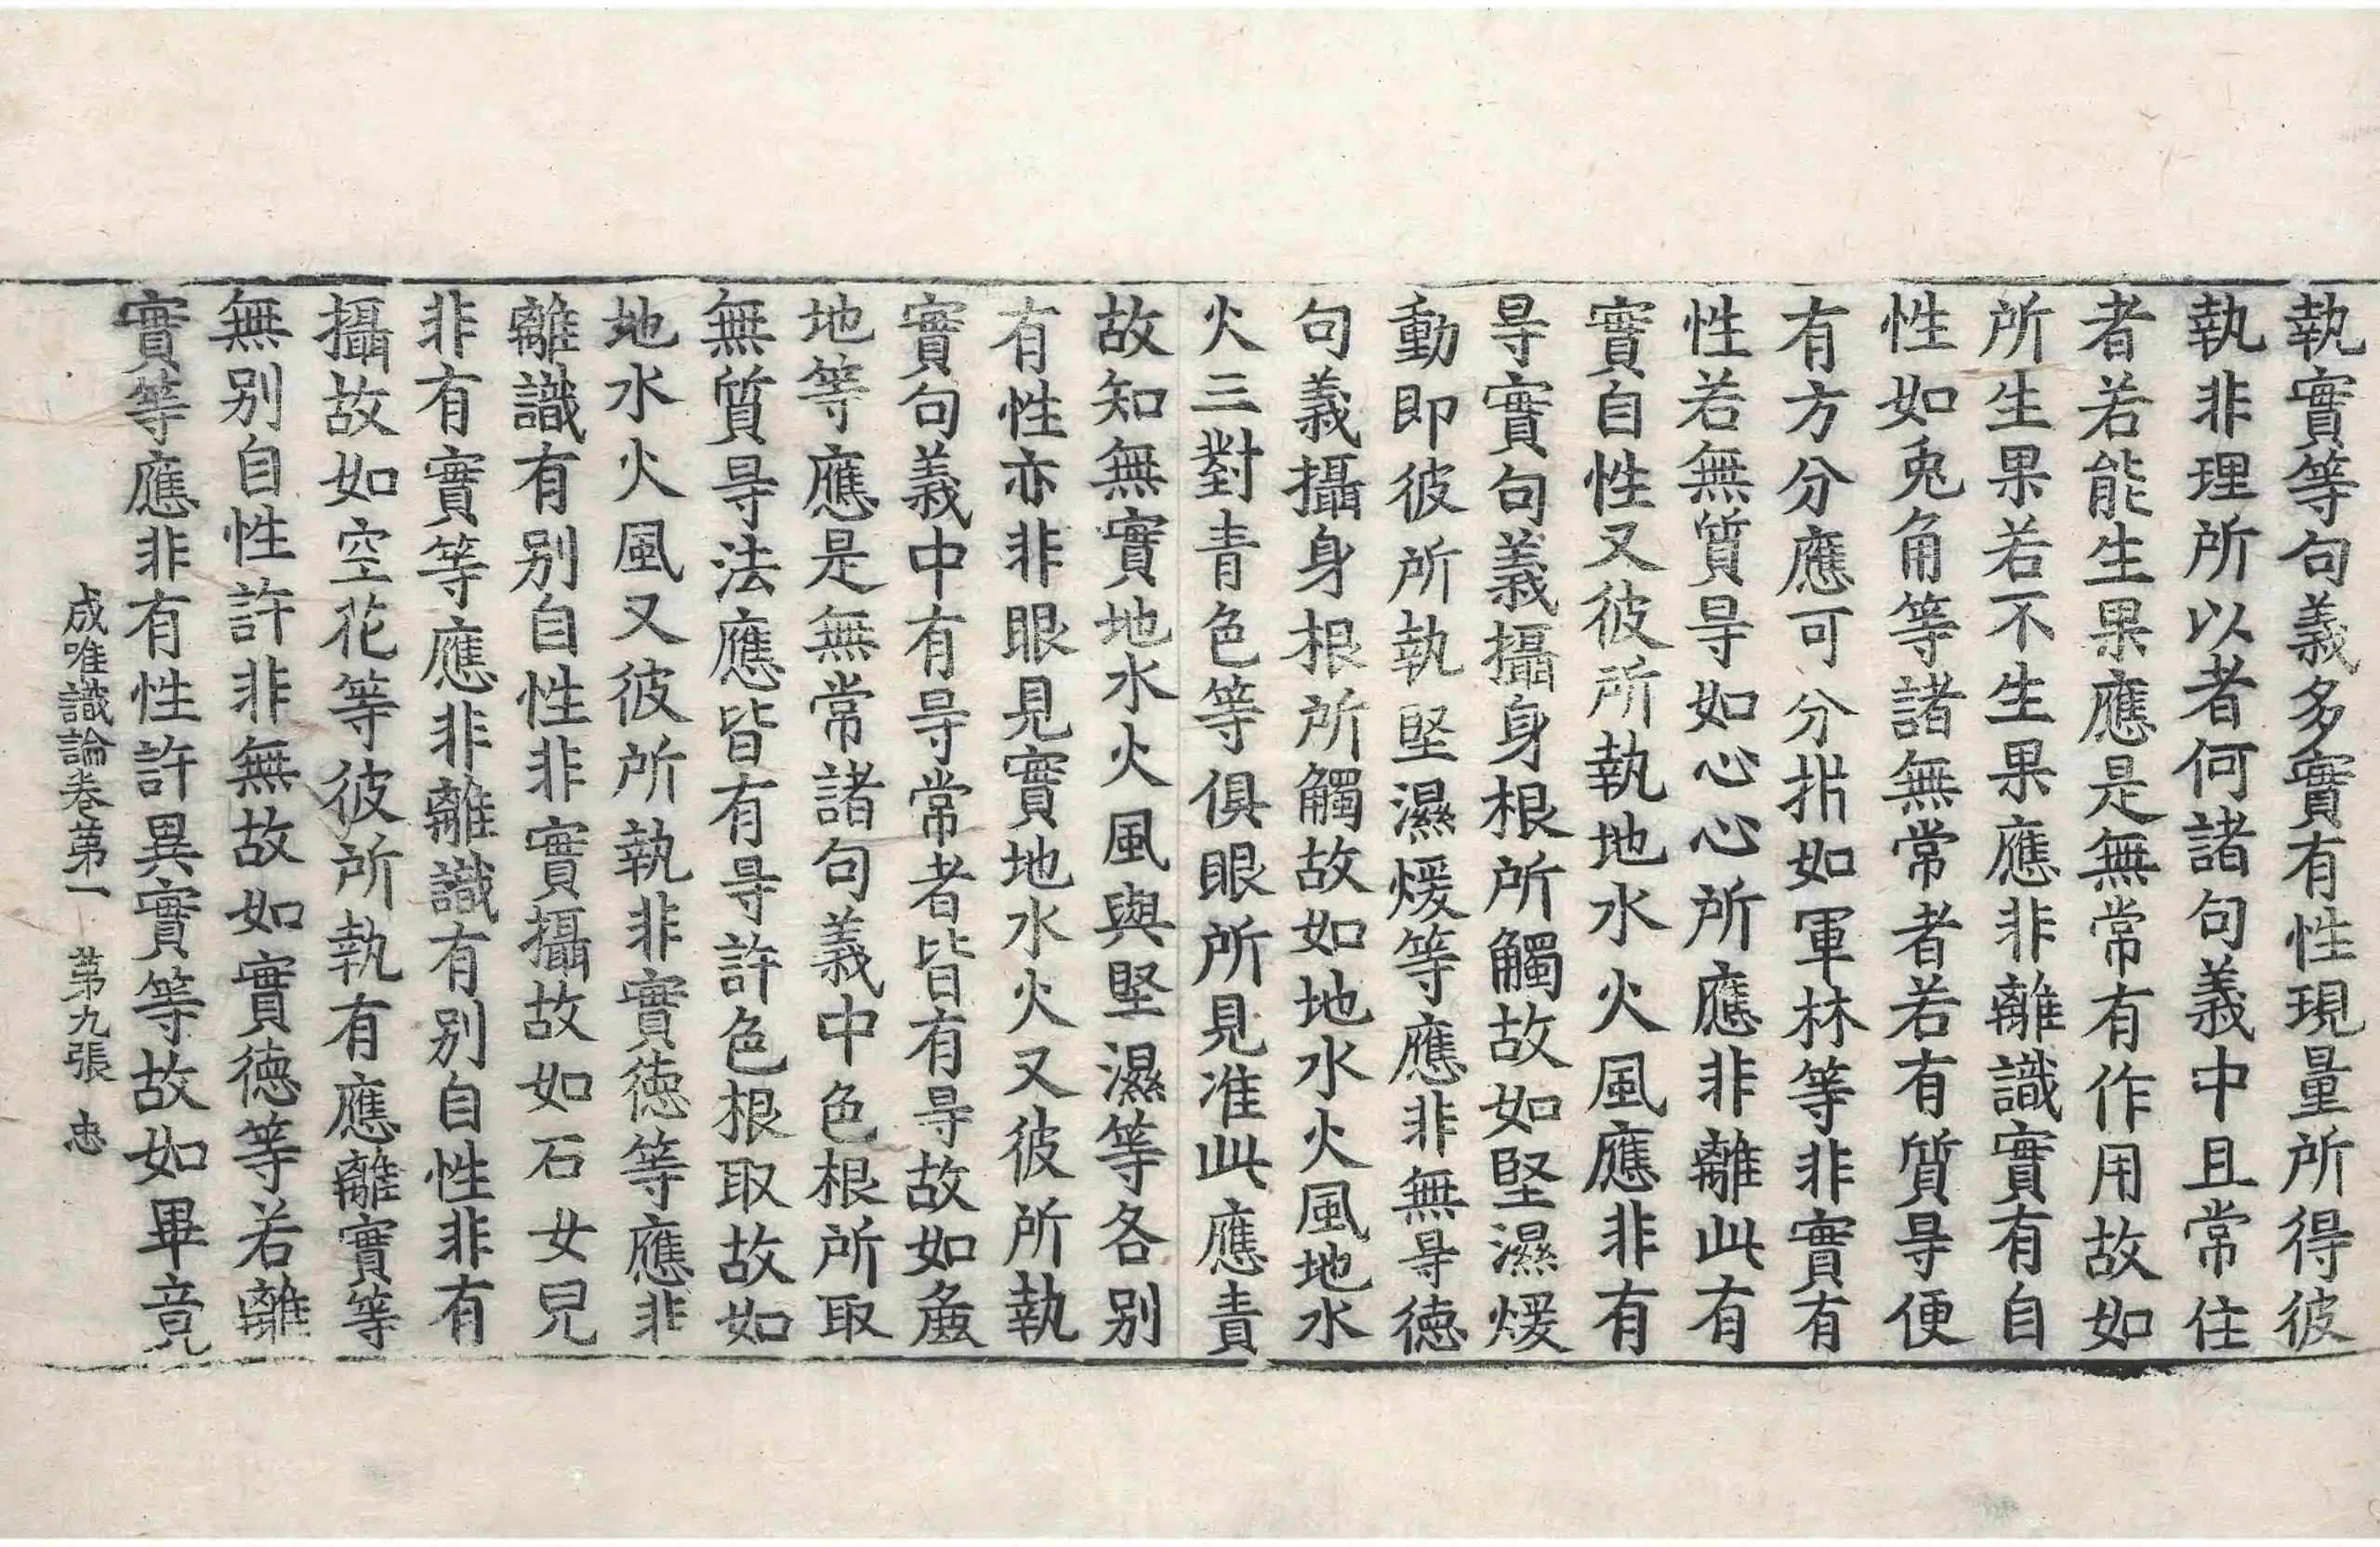 執實等句義多實有性現量所得彼
執非理所以者何諸句義中且常住
者若能生果應是無常有作用故如
所生果若不生果應非離識實有自
性如兎角等諸無常者若有質㝵便
有方分應可分㭊如軍林等非實有
性若無質㝵如心心所應非離此有
實自性又彼所執地水火風應非有
㝵實句義攝身根所觸故如堅濕煖
動即彼所執堅濕煖等應非無㝵徳
句義攝身根所觸故如地水火風地水
火三對青色等俱眼所見准此應責
故知無實地水火風與堅濕等各别
有性亦非眼見實地水火又彼所執
實句義中有㝵常者皆有㝵故如麁
地等應是無常諸句義中色根所取
無質㝵法應皆有㝵許色根取故如
地水火風又彼所執非實徳等應非
離識有别自性非實攝故如石女兒
非有實等應非離識有别自性非有
攝故如空花等彼所執有應離實等
無别自性許非無故如實徳等若離
實等應非有性許異實等故如畢竟
成唯識論卷第一 第九張 忠